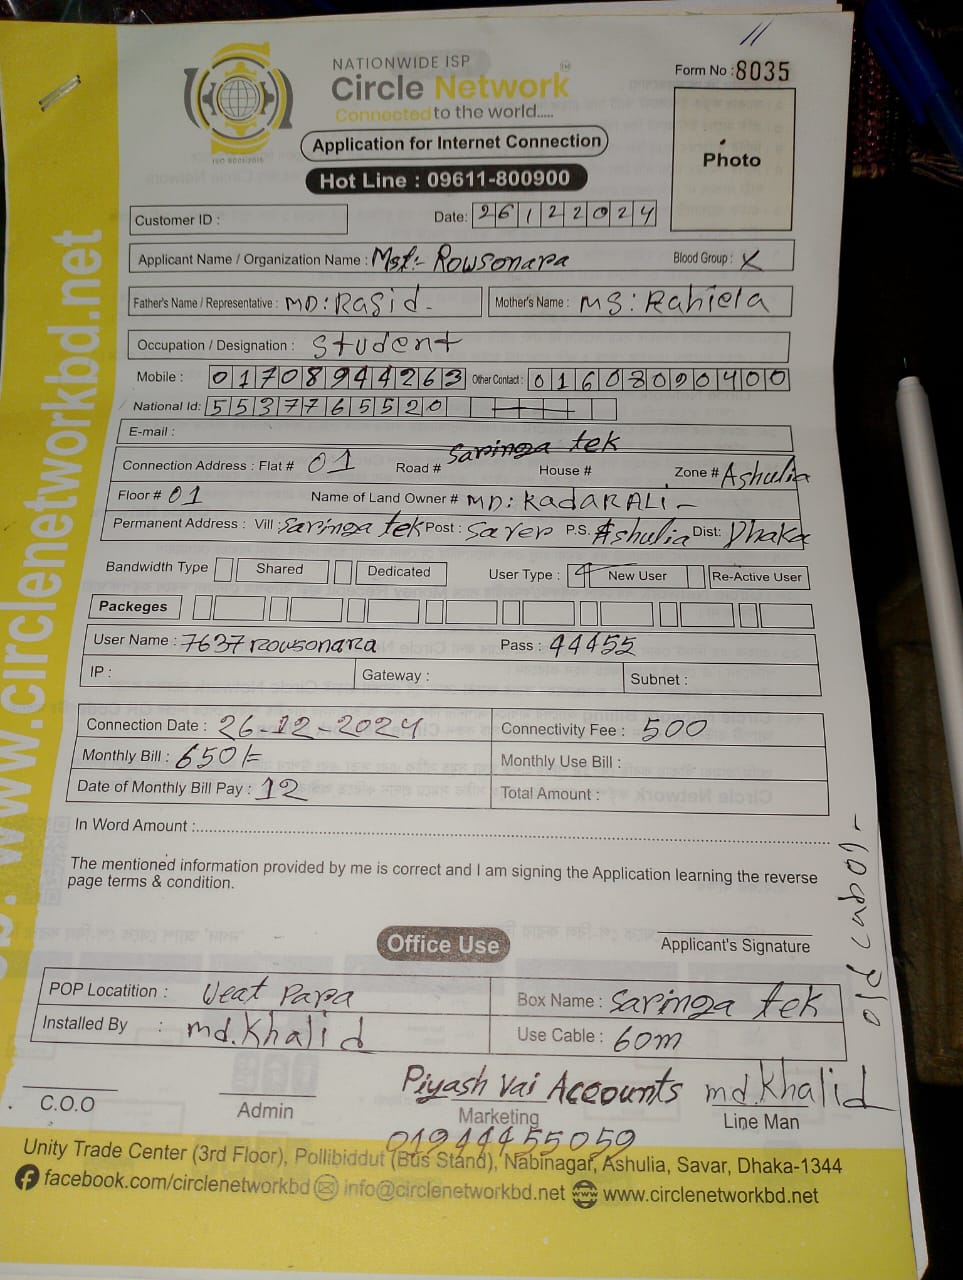 11
NATIONWIDE ISP
Circle Network
Connected to the world.....
ISO 9001:2015
Form No : 8035
Application for Internet Connection
Hot Line : 09611-800900
Photo
Customer ID :
Date: 26122024
Applicant Name / Organization Name : Mst:- Rowsonara Blood Group : X
Father's Name / Representative : MD: Rasid - Mother's Name : MS: Rahiela
Occupation / Designation : Student
Mobile : 01708944263 Other Contact : 01608090400
National Id: 5537765520
E-mail :
Connection Address : Flat # 01 Road # Saringa tek House # Zone # Ashulia
Floor # 01 Name of Land Owner # MD: KadarALI -
Permanent Address : Vill : Saringa tek Post : Saver P.S. Ashulia Dist: Dhaka
Bandwidth Type Shared Dedicated User Type : New User Re-Active User
Packeges
User Name : 7637rowsonara Pass : 44455
IP : Gateway : Subnet :
Connection Date : 26-12-2024 Connectivity Fee : 500
Monthly Bill : 650/= Monthly Use Bill :
Date of Monthly Bill Pay : 12 Total Amount :
In Word Amount :
The mentioned information provided by me is correct and I am signing the Application learning the reverse
page terms & condition.
Applicant's Signature
Office Use
POP Locatition : Ueat Para Box Name : Saringa tek
Installed By : md.Khalid Use Cable : 60m
Piyash Vai Accounts md.Khalid
C.O.O Admin Marketing Line Man
01944455059
Unity Trade Center (3rd Floor), Pollibiddut (Bus Stand), Nabinagar, Ashulia, Savar, Dhaka-1344
facebook.com/circlenetworkbd info@circlenetworkbd.net www.circlenetworkbd.net
www.circlenetworkbd.net